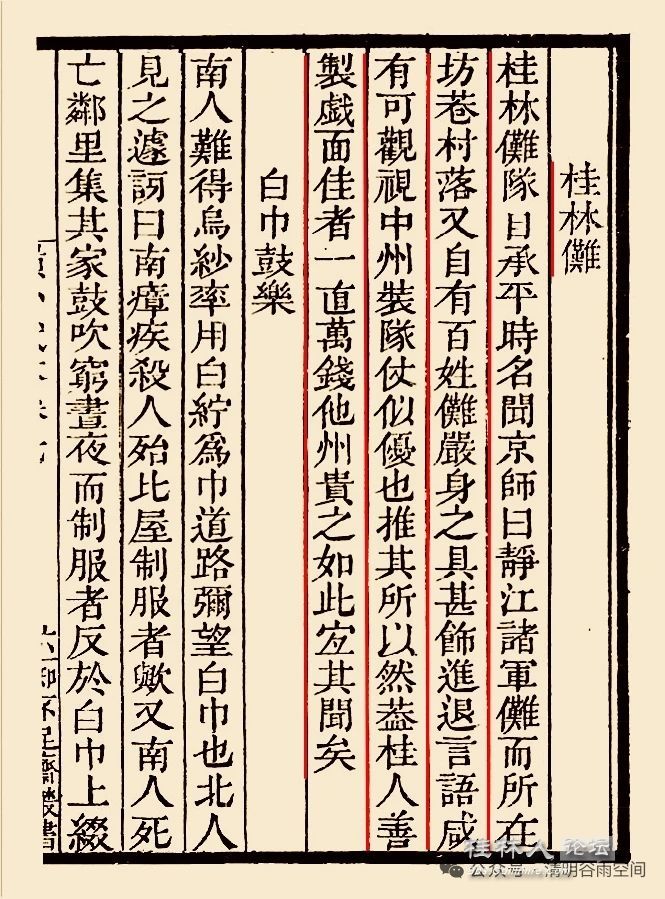 桂林儺
桂林儺隊自承平時名聞京師曰靜江諸軍儺而所在
坊巷村落又自有百姓儺嚴身之具甚飾進退言語咸
有可觀視中州裝隊仗似優也推其所以然葢桂人善
製戲面佳者一直萬錢他州貴之如此宐其聞矣
白巾鼓樂
南人難得烏紗率用白紵爲巾道路彌望白巾也北人
見之遽訝曰南瘴疾殺人殆比屋制服者歟又南人死
亡鄰里集其家鼓吹窮晝夜而制服者反於白巾上綴
不足齋叢書
桂林人论坛
公众号·清明谷雨空间